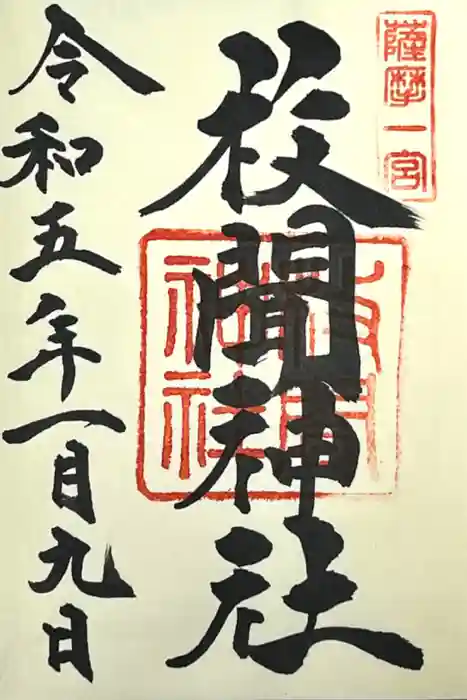 薩摩一宮
枚聞神社
令和五年一月九日